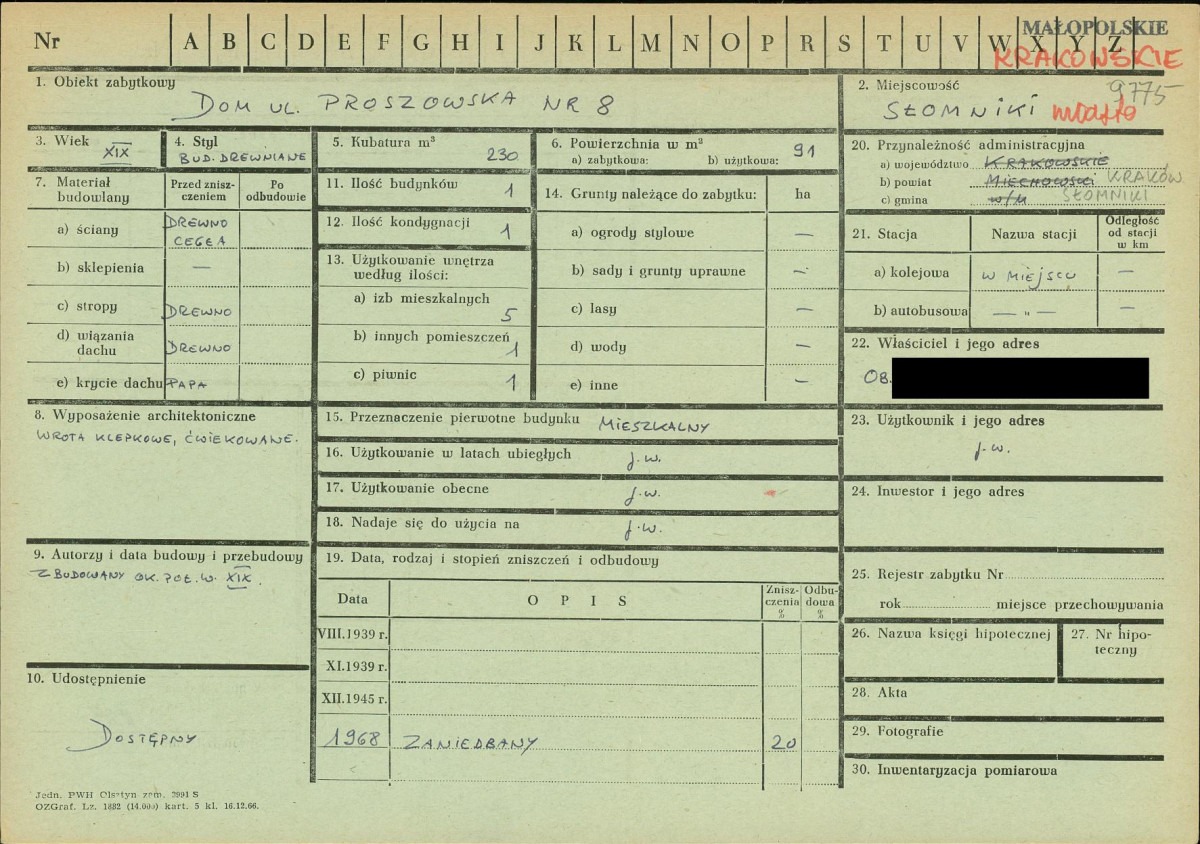 Nr A B C D E F G H I J K L M N O P R S T U V W X Y Z
MAŁOPOLSKIE
KRAKOWSKIE
1. Obiekt zabytkowy
DOM UL. PROSZOWSKA NR 8
2. Miejscowość
9775
SŁOMNIKI miasto
3. Wiek
XIX
4. Styl
BUD. DREWNIANE
5. Kubatura m³
230
6. Powierzchnia w m²
a) zabytkowa: b) użytkowa: 91
20. Przynależność administracyjna
a) województwo KRAKOWSKIE
b) powiat MIECHOWSKI KRAKÓW
c) gmina w/m SŁOMNIKI
7. Materiał budowlany
Przed zniszczeniem
Po odbudowie
a) ściany DREWNO
CEGŁA
b) sklepienia —
c) stropy DREWNO
d) wiązania dachu DREWNO
e) krycie dachu PAPA
11. Ilość budynków 1
12. Ilość kondygnacji 1
13. Użytkowanie wnętrza
według ilości:
a) izb mieszkalnych 5
b) innych pomieszczeń 1
c) piwnic 1
14. Grunty należące do zabytku: ha
a) ogrody stylowe —
b) sady i grunty uprawne —
c) lasy —
d) wody —
e) inne —
21. Stacja
Nazwa stacji
Odległość od stacji w km
a) kolejowa W MIEJSCU —
b) autobusowa — „ — —
22. Właściciel i jego adres
OB.
8. Wyposażenie architektoniczne
WROTA KLEPKOWE, ĆWIEKOWANE.
15. Przeznaczenie pierwotne budynku MIESZKALNY
16. Użytkowanie w latach ubiegłych j.w.
17. Użytkowanie obecne j.w.
18. Nadaje się do użycia na j.w.
23. Użytkownik i jego adres
j.w.
24. Inwestor i jego adres
9. Autorzy i data budowy i przebudowy
ZBUDOWANY OK. POŁ. W. XIX.
19. Data, rodzaj i stopień zniszczeń i odbudowy
Data
OPIS
Zniszczenia %
Odbudowa %
VIII.1939 r.
XI.1939 r.
XII.1945 r.
1968 ZANIEDBANY 20
25. Rejestr zabytku Nr
rok miejsce przechowywania
26. Nazwa księgi hipotecznej
27. Nr hipoteczny
10. Udostępnienie
DOSTĘPNY
28. Akta
29. Fotografie
30. Inwentaryzacja pomiarowa
Jedn. PWH Olsztyn zam. 2991 S
OZGraf. Lz. 1882 (14.000) kart. 5 kl. 16.12.66.